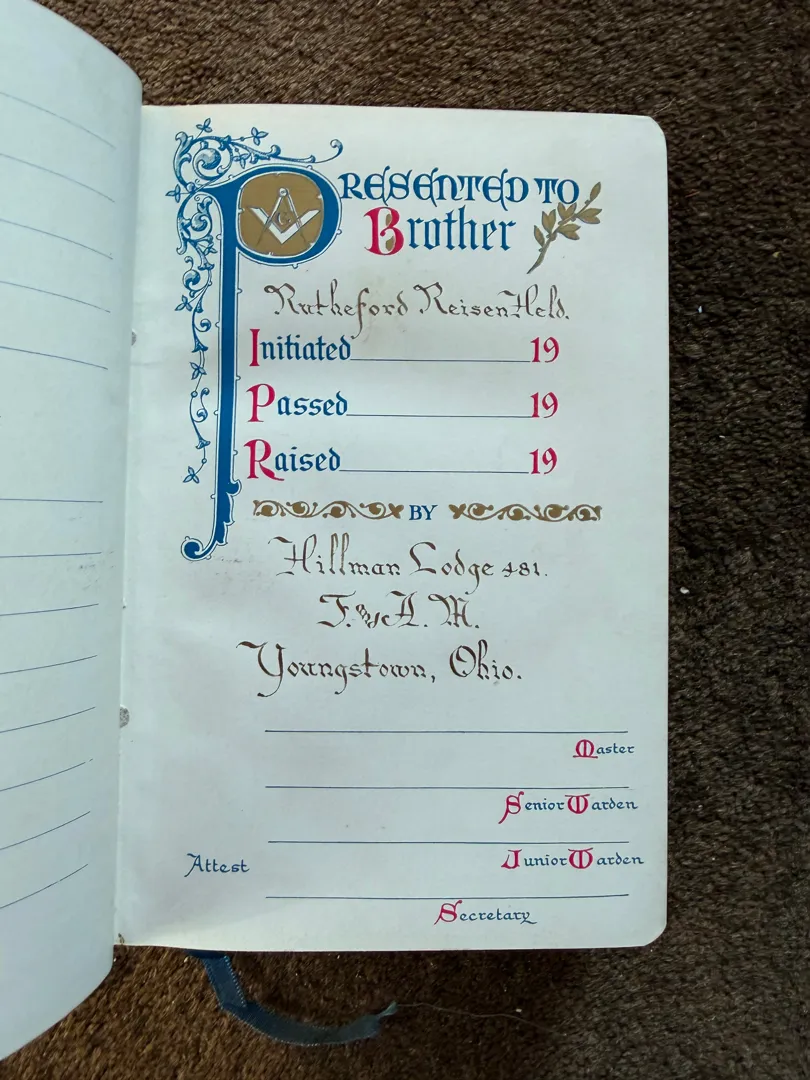 PRESENTED TO
Brother
Rutheford ReisenHeld.
Initiated 19
Passed 19
Raised 19
BY
Hillman Lodge 481.
F. & A. M.
Youngstown, Ohio.
Master
Senior Warden
Attest Junior Warden
Secretary